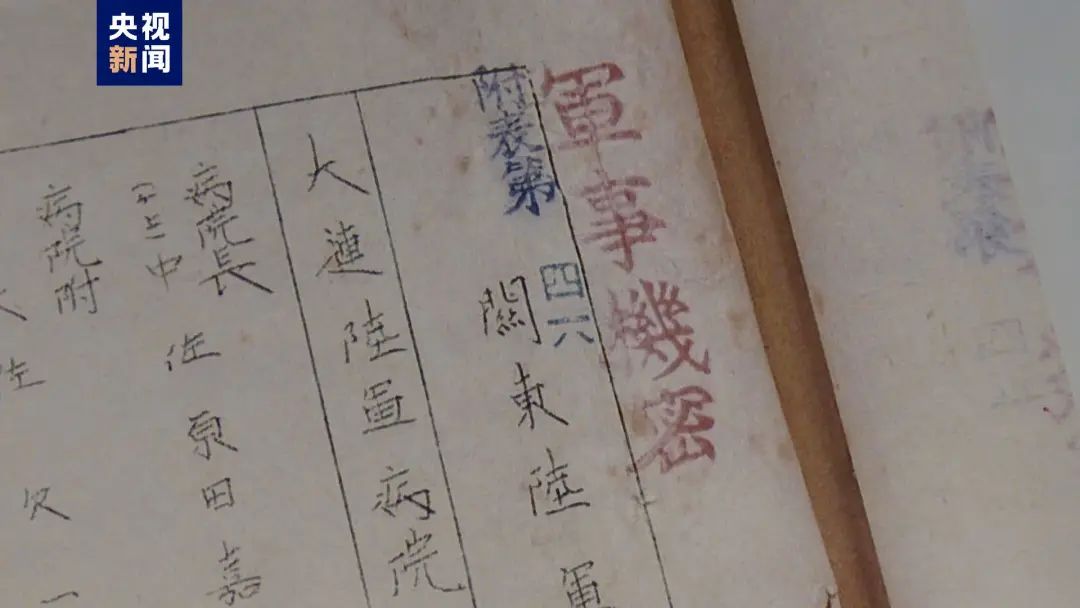 央视
新闻
軍事機密
附表第四六
關東陸軍
大連陸軍病院
病院長
中佐 原田嘉
病院附